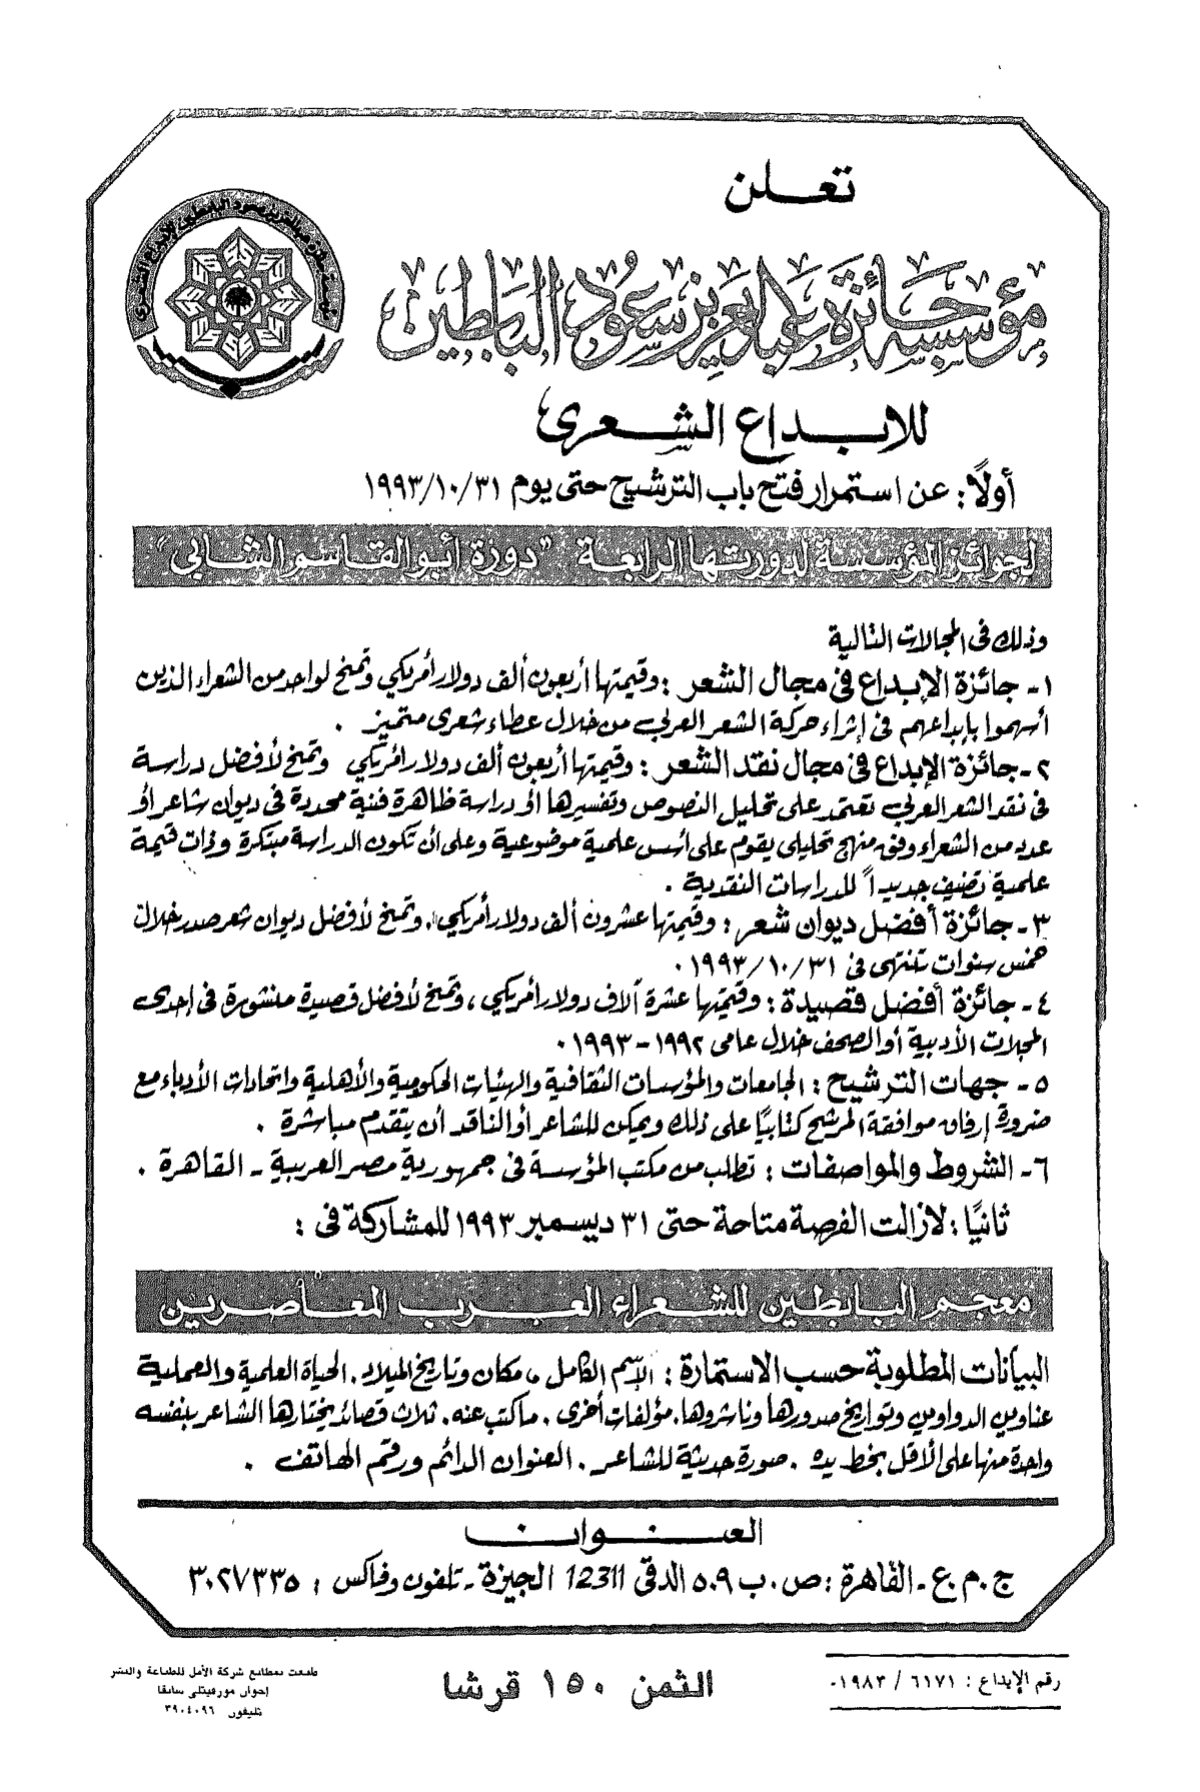 تعلن
مؤسسة جائزة عبدالعزيز سعود البابطين
للابداع الشعرى
أولًا: عن استمرار فتح باب الترشيح حتى يوم ١٩٩٣/١٠/٣١
لجوائز المؤسسة لدورتها الرابعة "دورة أبو القاسم الشابي"
وذلك فى المجالات التالية
١- جائزة الإبداع فى مجال الشعر : وقيمتها أربعون ألف دولار أمريكي وتمنح لواحد من الشعراء الذين
أسهموا بإبداعهم فى إثراء حركة الشعر العربى من خلال عطاء شعرى متميز .
٢- جائزة الإبداع فى مجال نقد الشعر : وقيمتها أربعون ألف دولار أمريكي وتمنح لأفضل دراسة
فى نقد الشعر العربى تعتمد على تحليل النصوص وتفسيرها أو دراسة ظاهرة فنية محددة فى ديوان شاعر أو
عدد من الشعراء وفق منهج تحليلى يقوم على أسس علمية موضوعية وعلى أن تكون الدراسة مبتكرة وذات قيمة
علمية تضيف جديداً للدراسات النقدية .
٣- جائزة أفضل ديوان شعر : وقيمتها عشرون ألف دولار أمريكي، وتمنح لأفضل ديوان شعر صدر خلال
خمس سنوات تنتهى فى ١٩٩٣/١٠/٣١ .
٤- جائزة أفضل قصيدة : وقيمتها عشرة آلاف دولار أمريكي ، وتمنح لأفضل قصيدة منشورة فى إحدى
المجلات الأدبية أو الصحف خلال عامى ١٩٩٢-١٩٩٣ .
٥- جهات الترشيح : الجامعات والمؤسسات الثقافية والهيئات الحكومية والأهلية واتحادات الأدباء مع
ضرورة إرفاق موافقة المرشح كتابيًا على ذلك ويمكن للشاعر أو الناقد أن يتقدم مباشرة .
٦- الشروط والمواصفات : تطلب من مكتب المؤسسة فى جمهورية مصر العربية - القاهرة .
ثانيًا : لازالت الفرصة متاحة حتى ٣١ ديسمبر ١٩٩٣ للمشاركة فى :
معجم البابطين للشعراء العرب المعاصرين
البيانات المطلوبة حسب الاستمارة : الإسم الكامل ، مكان وتاريخ الميلاد . الحياة العلمية والعملية
عناوين الدواوين وتواريخ صدورها وناشروها . مؤلفات أخرى . ماكتب عنه . ثلاث قصائد يختارها الشاعر بنفسه
واحدة منها على الأقل بخط يده . صورة حديثة للشاعر . العنوان الدائم ورقم الهاتف .
العنوان
ج . م . ع - القاهرة : ص . ب ٥٠٩ الدقى 12311 الجيزة - تلفون وفاكس : ٣٠٢٧٣٣٥
رقم الإيداع : ٦١٧١ / ١٩٨٣٠
الثمن ١٥٠ قرشا
طبعت بمطابع شركة الأمل للطباعة والنشر
إخوان مورفيتلى سابقا
تليفون ٣٩٠٤٠٩٦